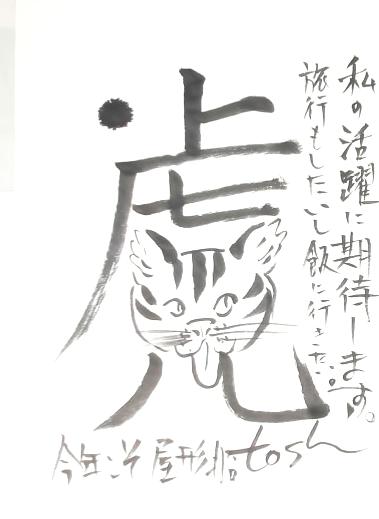 私の活躍に期待します。
旅行もしたいし飯に行きたい。
虎
今年こそ屋形船
tosh